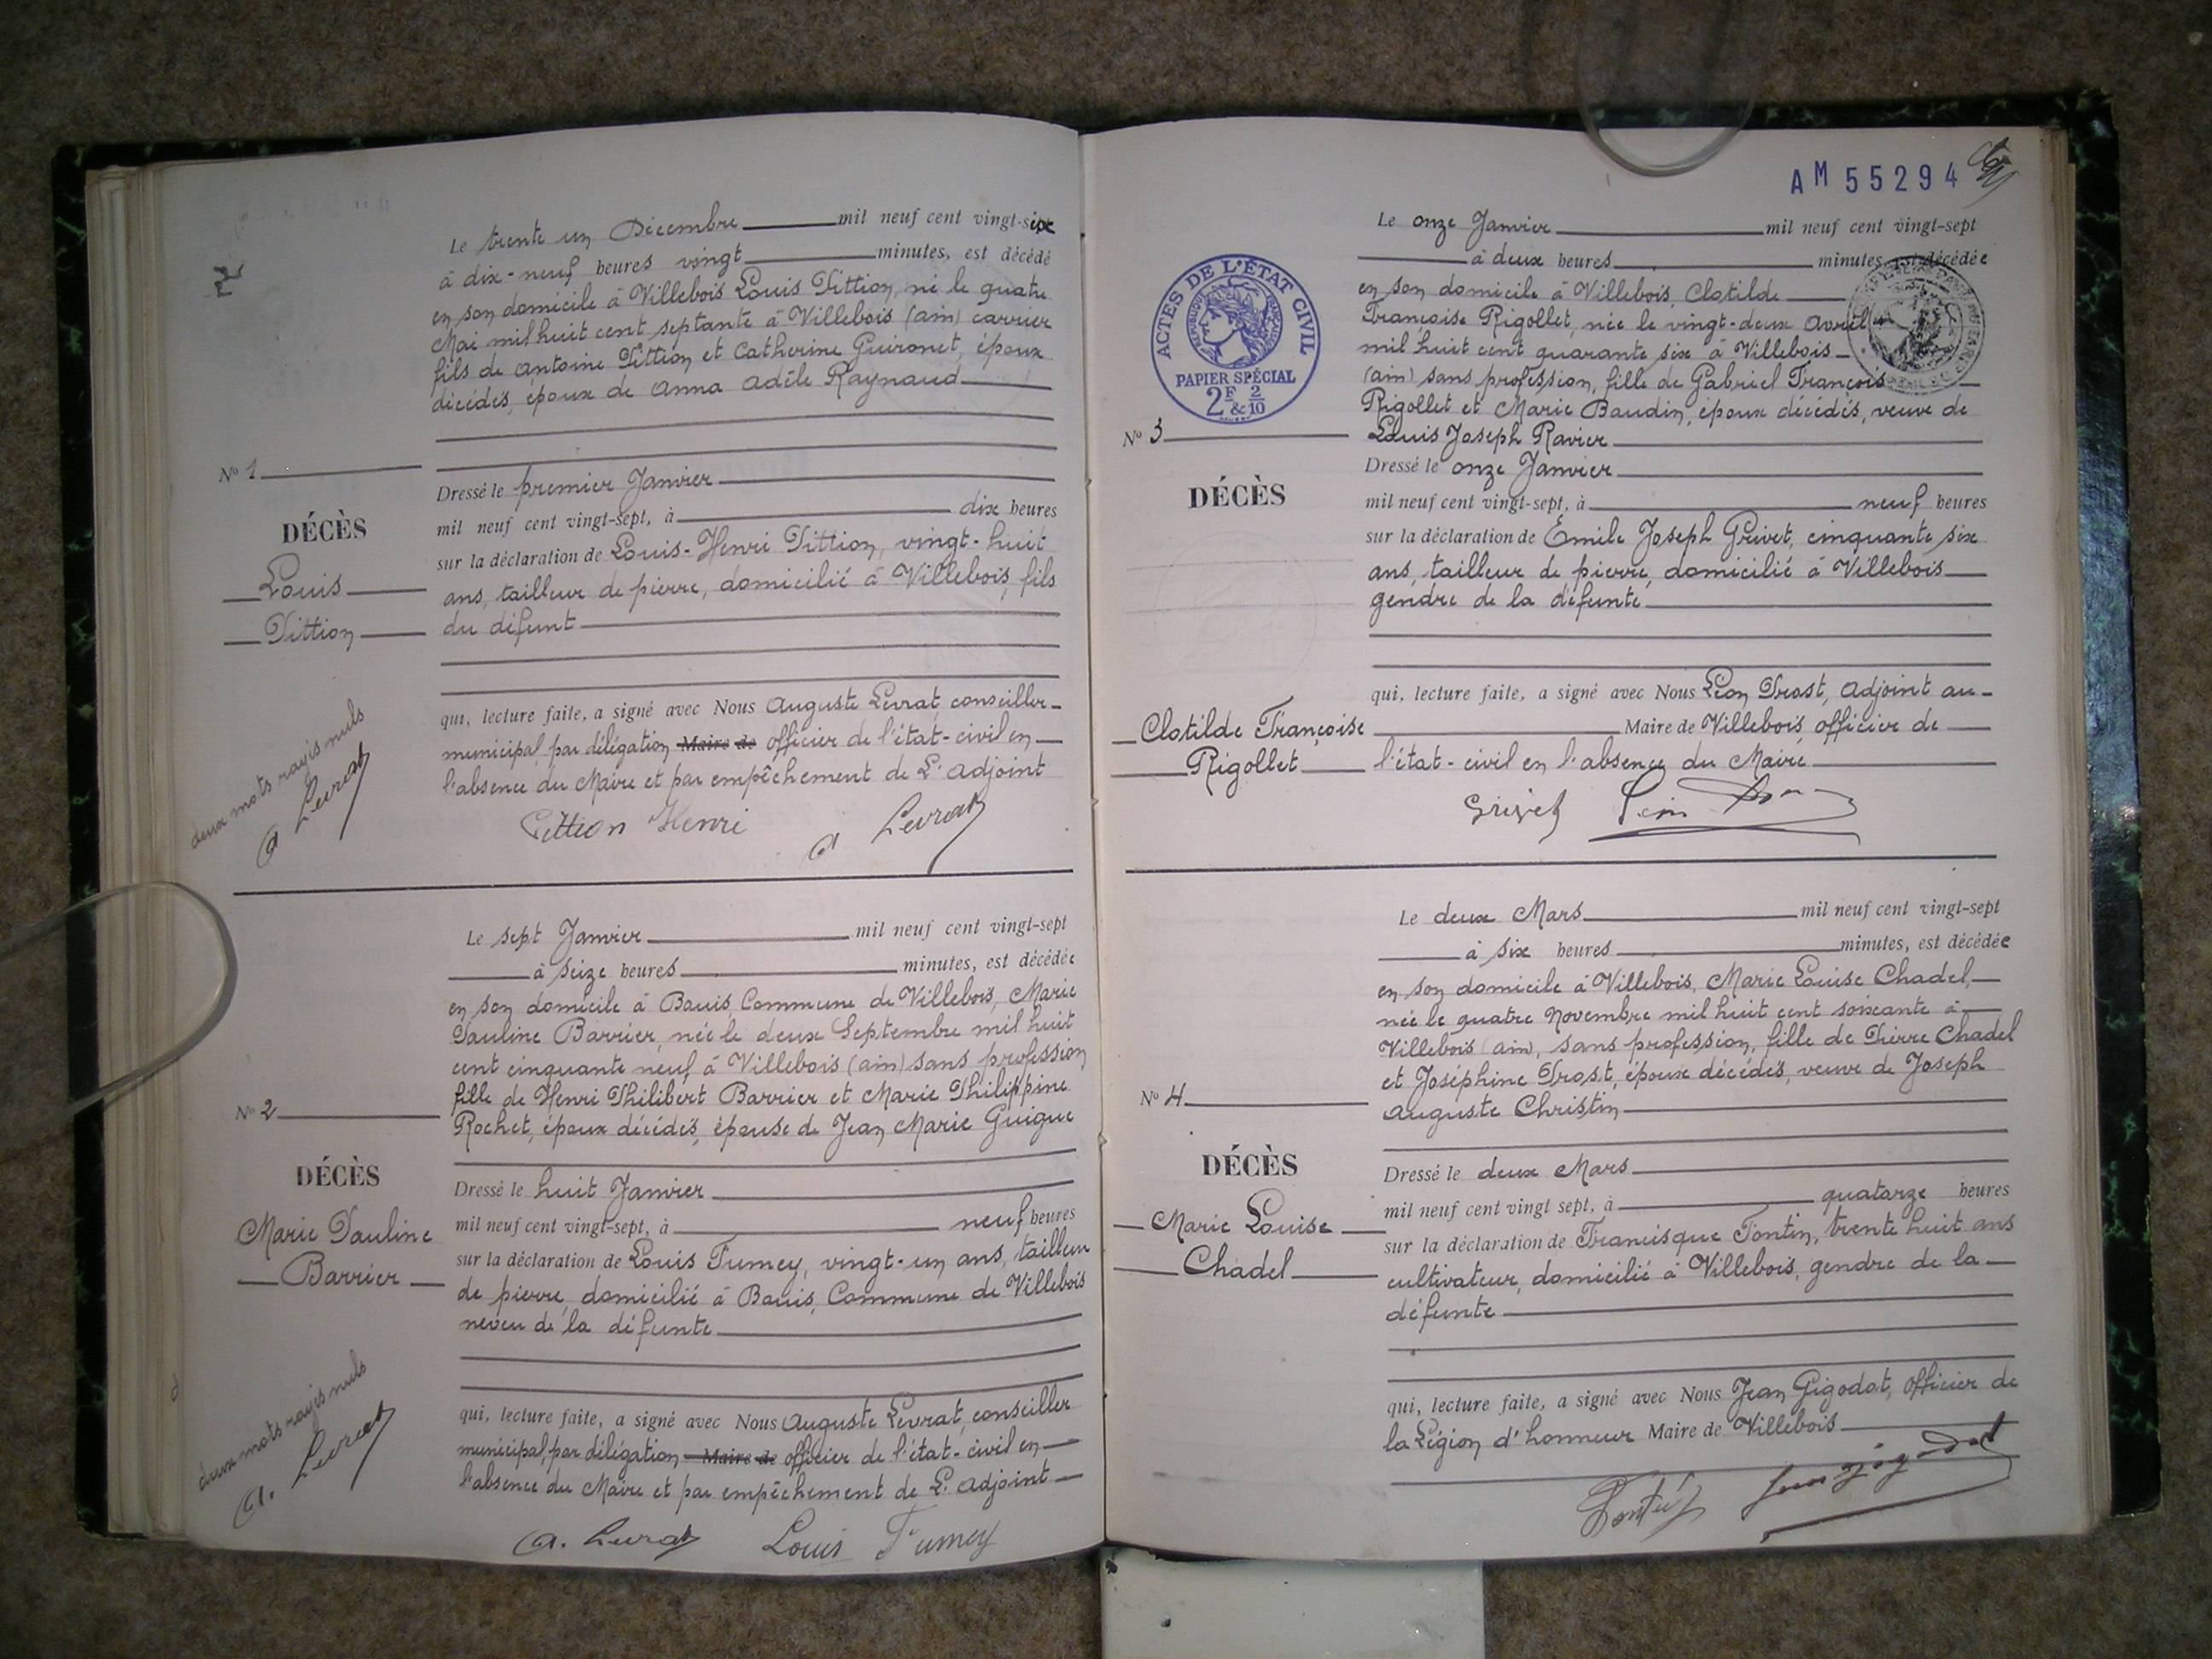 Le trente un Décembre mil neuf cent vingt-six
à dix-neuf heures vingt minutes, est décédé
en son domicile à Villebois Louis Pittion, né le quatre
Mai mil huit cent septante à Villebois (ain) carrier
fils de Antoine Pittion et Catherine Guironet, époux
décédés, époux de Anna Adèle Raynaud
Nº 1
DÉCÈS
Louis
Pittion
Dressé le premier Janvier
mil neuf cent vingt-sept, à dix heures
sur la déclaration de Louis-Henri Pittion, vingt-huit
ans, tailleur de pierre, domicilié à Villebois, fils
du défunt
qui, lecture faite, a signé avec Nous Auguste Levrat, conseiller
municipal, par délégation Maire de officier de l'état-civil en
l'absence du Maire et par empêchement de L'adjoint
deux mots rayés nuls
A Levrat
Pittion Henri
A Levrat
Le sept Janvier mil neuf cent vingt-sept
à seize heures minutes, est décédée
en son domicile à Bouis, Commune de Villebois, Marie
Pauline Barrier, née le deux Septembre mil huit
cent cinquante neuf, à Villebois (ain) sans profession
fille de Henri Philibert Barrier et Marie Philippine
Rochet, époux décédés, épouse de Jean Marie Guigue
Nº 2
DÉCÈS
Marie Pauline
Barrier
Dressé le huit Janvier
mil neuf cent vingt-sept, à neuf heures
sur la déclaration de Louis Fumey, vingt-un ans, tailleur
de pierre, domicilié à Bouis, Commune de Villebois
neveu de la défunte
qui, lecture faite, a signé avec Nous Auguste Levrat, conseiller
municipal, par délégation Maire de officier de l'état-civil en
l'absence du Maire et par empêchement de L'adjoint
deux mots rayés nuls
A. Levrat
A. Levrat Louis Fumey
AM 55294
Le onze Janvier mil neuf cent vingt-sept
à deux heures minutes, est décédée
en son domicile à Villebois, Clotilde
Françoise Rigollet, née le vingt-deux Avril
mil huit cent quarante six à Villebois
(ain) sans profession, fille de Gabriel François
Rigollet et Marie Baudin, époux décédés, veuve de
Louis Joseph Ravier
ACTES DE L'ÉTAT CIVIL
RÉPUBLIQUE FRANÇAISE
PAPIER SPÉCIAL
2F & 2/10
Nº 3
DÉCÈS
Clotilde Françoise
Rigollet
Dressé le onze Janvier
mil neuf cent vingt-sept, à neuf heures
sur la déclaration de Emile Joseph Grivet, cinquante six
ans, tailleur de pierre, domicilié à Villebois
gendre de la défunte
qui, lecture faite, a signé avec Nous Léon Prost, Adjoint au
Maire de Villebois, officier de
l'état-civil en l'absence du Maire
Grivet Léon Prost
Le deux Mars mil neuf cent vingt-sept
à six heures minutes, est décédée
en son domicile à Villebois, Marie Louise Chadel,
née le quatre Novembre mil huit cent soixante à
Villebois (ain), sans profession, fille de Pierre Chadel
et Joséphine Prost, époux décédés, veuve de Joseph
Auguste Christin
Nº 4
DÉCÈS
Marie Louise
Chadel
Dressé le deux Mars
mil neuf cent vingt sept, à quatorze heures
sur la déclaration de Francisque Pontin, trente huit ans
cultivateur, domicilié à Villebois, gendre de la
défunte
qui, lecture faite, a signé avec Nous Jean Gigodot, Officier de
la Légion d'honneur Maire de Villebois
Jean Gigodot